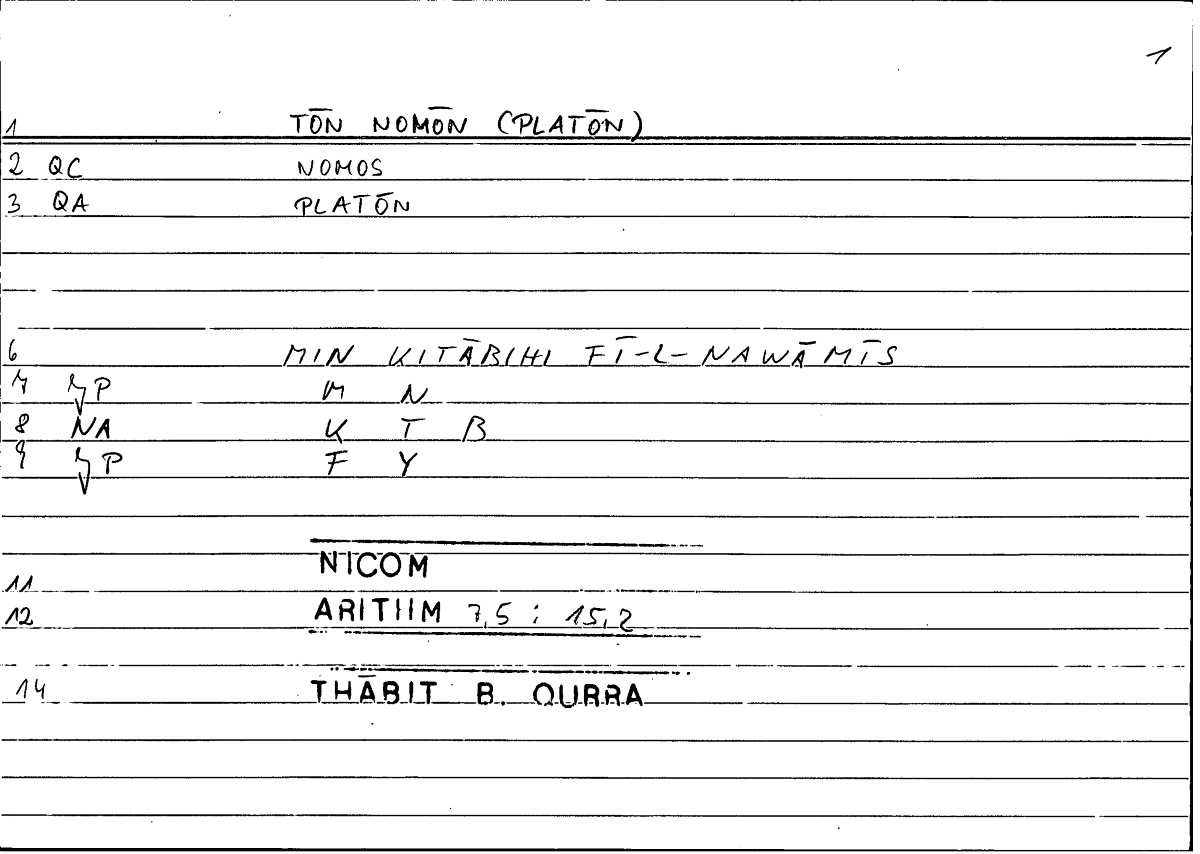 1
1 TŌN NOMŌN (PLATŌN)
2 QC NOMOS
3 QA PLATŌN
6 MIN KITĀBIHI FĪ-L-NAWĀMĪS
7 P M N
8 NA K T B
9 P F Y
NICOM
11
12 ARITIIM 7,5 : 15,2
14 THĀBIT B. QURRA